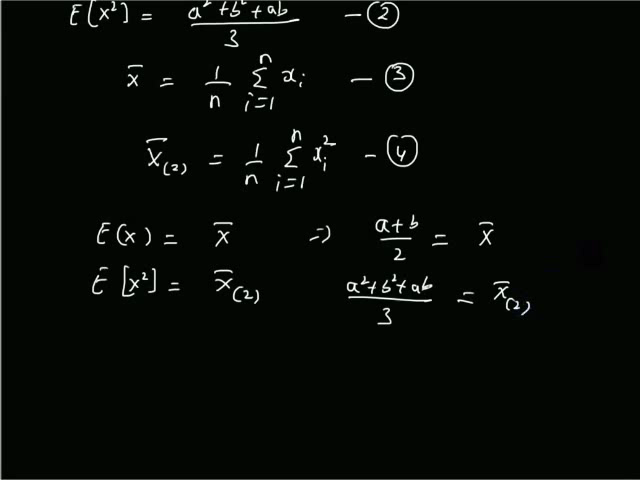 E[X²] = a²+b²+ab / 3 — ②
x̄ = 1/n Σ_{i=1}^{n} xᵢ — ③
X̄₍₂₎ = 1/n Σ_{i=1}^{n} xᵢ² — ④
E(X) = X̄ ⇒ a+b / 2 = X̄
E[X²] = X̄₍₂₎ a²+b²+ab / 3 = X̄₍₂₎